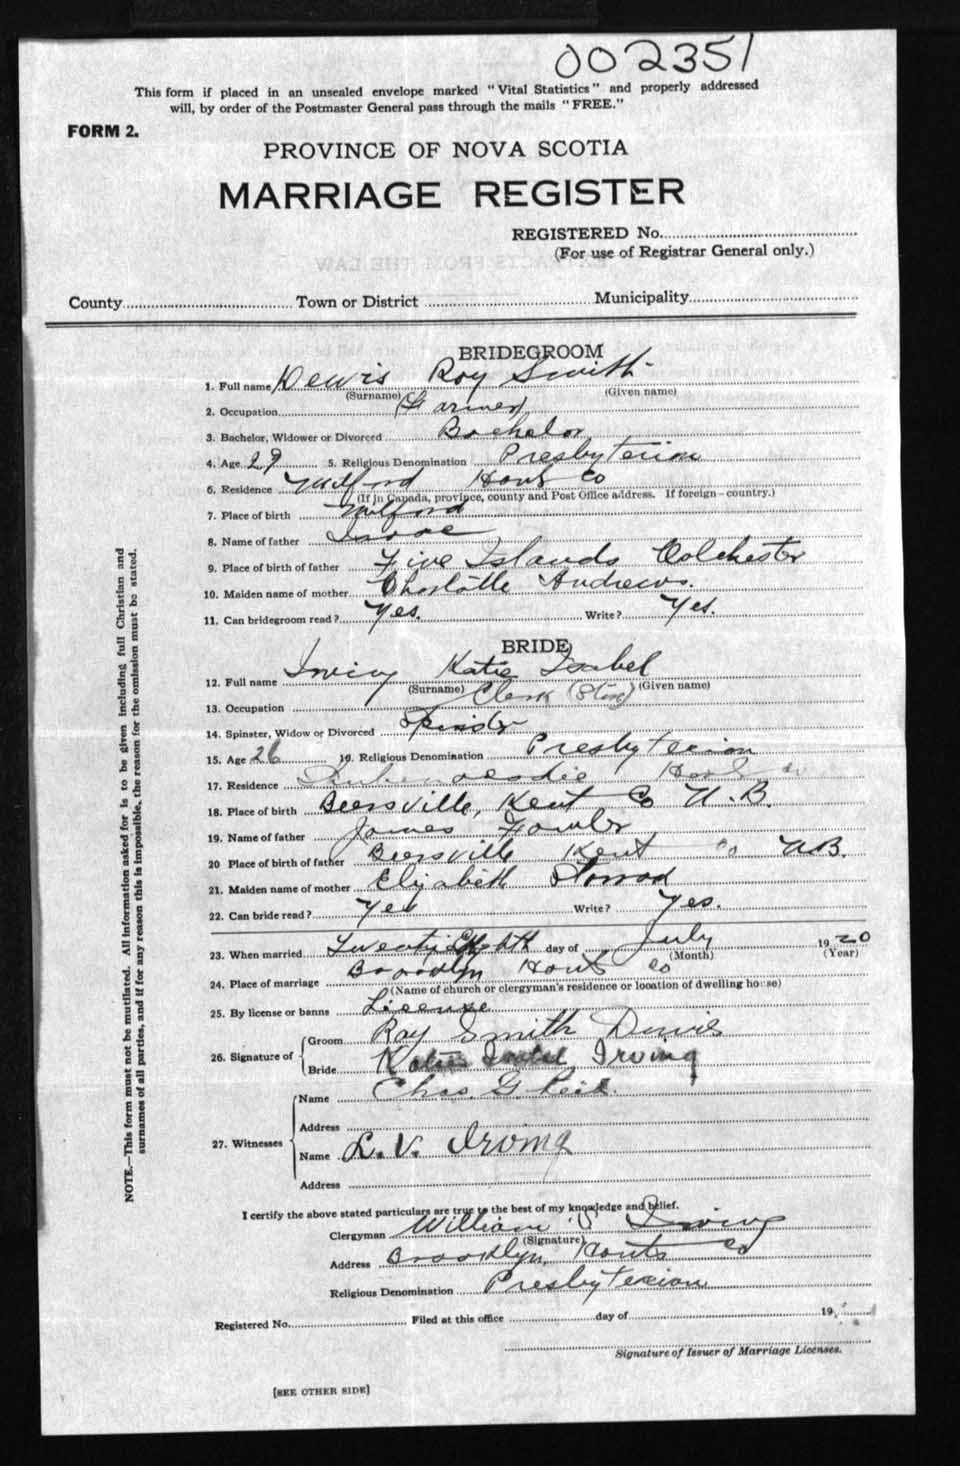 002351
This form if placed in an unsealed envelope marked "Vital Statistics" and properly addressed
will, by order of the Postmaster General pass through the mails "FREE."
FORM 2.
PROVINCE OF NOVA SCOTIA
MARRIAGE REGISTER
REGISTERED No.
(For use of Registrar General only.)
County Town or District Municipality
BRIDEGROOM
1. Full name Dewis Roy Smith
(Surname) (Given name)
2. Occupation Farmer
3. Bachelor, Widower or Divorced Bachelor
4. Age 29 5. Religious Denomination Presbyterian
6. Residence Milford Hants Co
(If in Canada, province, county and Post Office address. If foreign—country.)
7. Place of birth Milford
8. Name of father Isaac
9. Place of birth of father Five Islands Colchester
10. Maiden name of mother Charlotte Andrews.
11. Can bridegroom read? Yes. Write? Yes.
BRIDE
12. Full name Irving Katie Isabel
(Surname) (Given name)
13. Occupation Clerk (Store)
14. Spinster, Widow or Divorced Spinster
15. Age 26 16. Religious Denomination Presbyterian
17. Residence Shubenacadie Hants Co
18. Place of birth Beersville, Kent Co N.B.
19. Name of father James Fowler
20 Place of birth of father Beersville Kent Co N.B.
21. Maiden name of mother Elizabeth
22. Can bride read? Yes Write? Yes.
23. When married Twenty Eighth day of July 1920
(Month) (Year)
24. Place of marriage Brooklyn Hants Co
(Name of church or clergyman's residence or location of dwelling house)
25. By license or banns License
26. Signature of Groom Roy Smith Dewis
Bride Katie Isabel Irving
27. Witnesses Name Chas. G.
Address
Name L. V. Irving
Address
I certify the above stated particulars are true to the best of my knowledge and belief.
Clergyman William Irving
(Signature)
Address Brooklyn, Hants Co
Religious Denomination Presbyterian
Registered No. Filed at this office day of 19
Signature of Issuer of Marriage Licenses.
[SEE OTHER SIDE]
NOTE.—This form must not be mutilated. All information asked for is to be given including full Christian and
surnames of all parties, and if for any reason this is impossible, the reason for the omission must be stated.